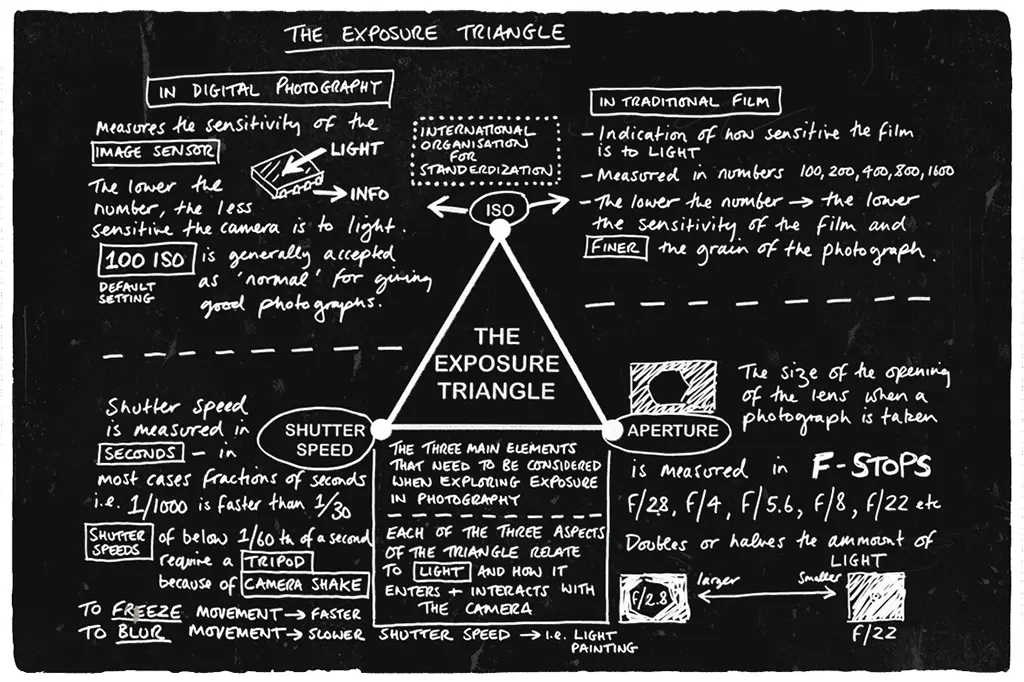 THE EXPOSURE TRIANGLE
IN DIGITAL PHOTOGRAPHY
Measures the sensitivity of the
IMAGE SENSOR
LIGHT
INFO
The lower the
number, the less
sensitive the camera is to light.
100 ISO is generally accepted
DEFAULT
SETTING
as 'normal' for giving
good photographs.
INTERNATIONAL
ORGANISATION
FOR
STANDERDIZATION
ISO
IN TRADITIONAL FILM
- Indication of how sensitive the film
is to LIGHT
- Measured in numbers 100, 200, 400, 800, 1600
- The lower the number → the lower
the sensitivity of the film and
FINER the grain of the photograph.
THE
EXPOSURE
TRIANGLE
SHUTTER
SPEED
APERTURE
Shutter Speed
is measured in
SECONDS - in
most cases fractions of seconds
i.e. 1/1000 is faster than 1/30
SHUTTER
SPEEDS
of below 1/60 th of a second
require a TRIPOD
because of CAMERA SHAKE
TO FREEZE MOVEMENT → FASTER
TO BLUR MOVEMENT → SLOWER SHUTTER SPEED → i.e. LIGHT
PAINTING
THE THREE MAIN ELEMENTS
THAT NEED TO BE CONSIDERED
WHEN EXPLORING EXPOSURE
IN PHOTOGRAPHY
EACH OF THE THREE ASPECTS
OF THE TRIANGLE RELATE
TO LIGHT AND HOW IT
ENTERS + INTERACTS WITH
THE CAMERA
The size of the opening
of the lens when a
photograph is taken
is measured in F-STOPS
F/2.8, F/4, F/5.6, F/8, F/22 etc
Doubles or halves the ammount of
LIGHT
F/2.8
larger
smaller
F/22